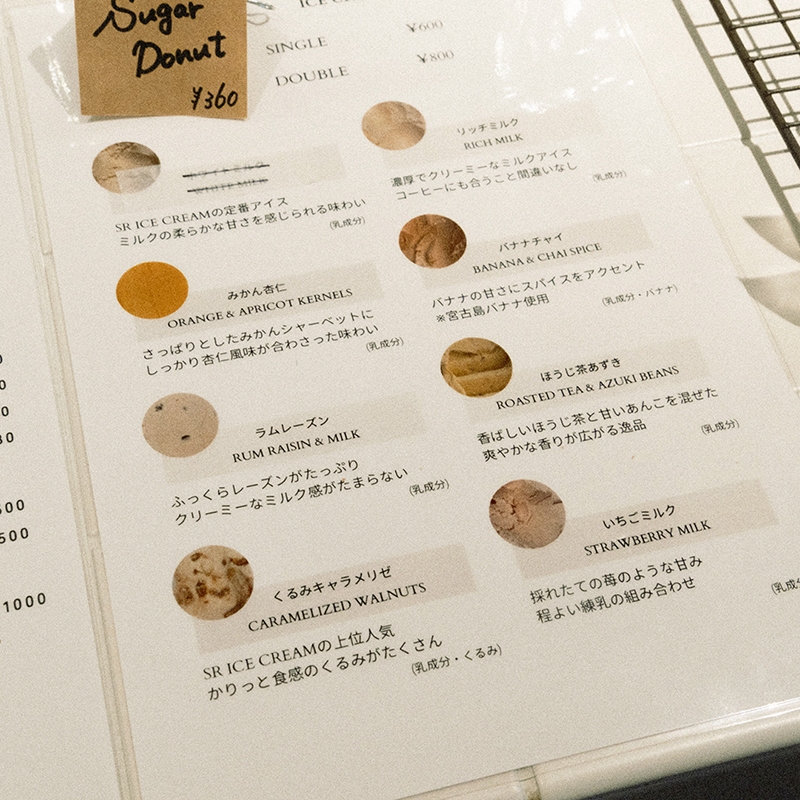 Sugar
Donut
¥360
ICE
SINGLE ¥600
DOUBLE ¥800
ホワイトミルク
WHITE MILK
SR ICE CREAMの定番アイス
ミルクの柔らかな甘さを感じられる味わい
(乳成分)
みかん杏仁
ORANGE & APRICOT KERNELS
さっぱりとしたみかんシャーベットに
しっかり杏仁風味が合わさった味わい
(乳成分)
ラムレーズン
RUM RAISIN & MILK
ふっくらレーズンがたっぷり
クリーミーなミルク感がたまらない
(乳成分)
くるみキャラメリゼ
CARAMELIZED WALNUTS
SR ICE CREAMの上位人気
かりっと食感のくるみがたくさん
(乳成分・くるみ)
リッチミルク
RICH MILK
濃厚でクリーミーなミルクアイス
コーヒーにも合うこと間違いなし
(乳成分)
バナナチャイ
BANANA & CHAI SPICE
バナナの甘さにスパイスをアクセント
※宮古島バナナ使用
(乳成分・バナナ)
ほうじ茶あずき
ROASTED TEA & AZUKI BEANS
香ばしいほうじ茶と甘いあんこを混ぜた
爽やかな香りが広がる逸品
(乳成分)
いちごミルク
STRAWBERRY MILK
採れたての苺のような甘み
程よい練乳の組み合わせ
(乳成分
500
500
1000